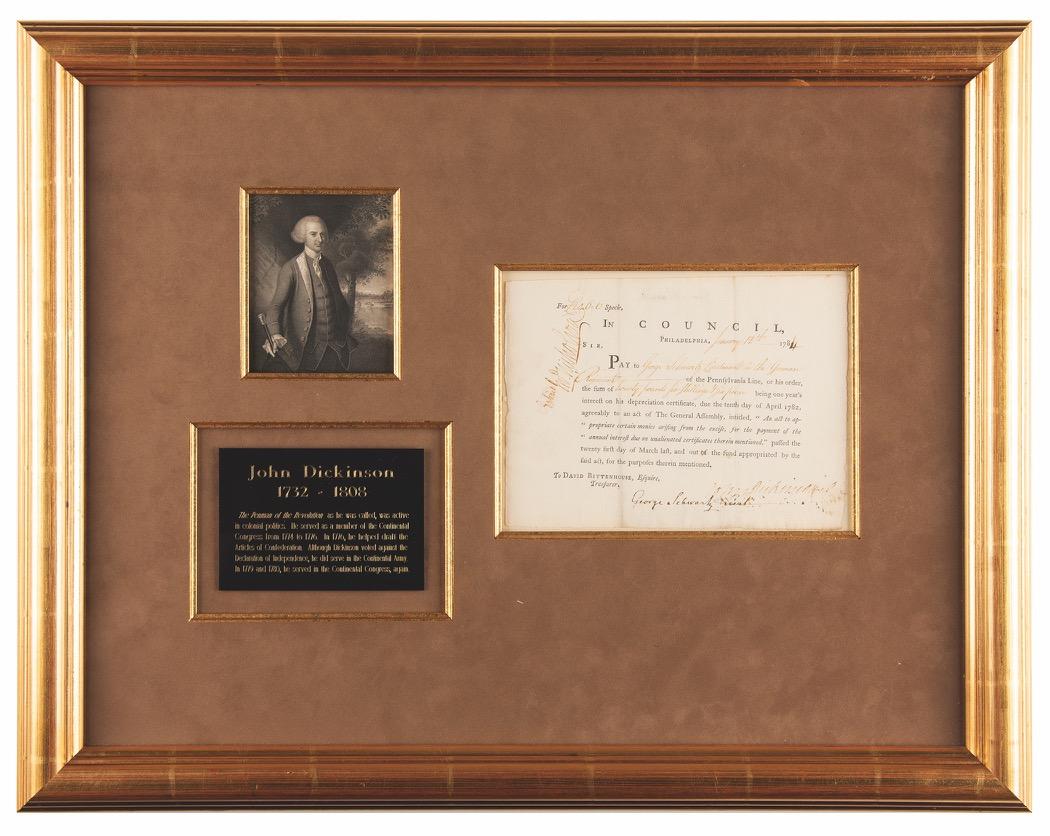 John Dickinson
1732 - 1808
The Penman of the Revolution as he was called, was active
in colonial politics. He served as a member of the Continental
Congress from 1774 to 1776. In 1776, he helped draft the
Articles of Confederation. Although Dickinson voted against the
Declaration of Independence, he did serve in the Continental Army.
In 1779 and 1780, he served in the Continental Congress, again.
For Specie,
IN COUNCIL,
PHILADELPHIA, January 1784
SIR,
PAY to George Schwartz Lieutenant in the German
Regiment of the Pennsylvania Line, or his order,
the sum of twenty pounds six shillings being one year's
interest on his depreciation certificate, due the tenth day of April 1782,
agreeably to an act of The General Assembly, intitled, " An act to ap-
" propriate certain monies arising from the excise, for the payment of the
" annual interest due on unalienated certificates therein mentioned," passed the
twenty first day of March last, and out of the fund appropriated by the
said act, for the purposes therein mentioned.
To DAVID RITTENHOUSE, Esquire,
Treasurer.
John Dickinson
George Schwartz